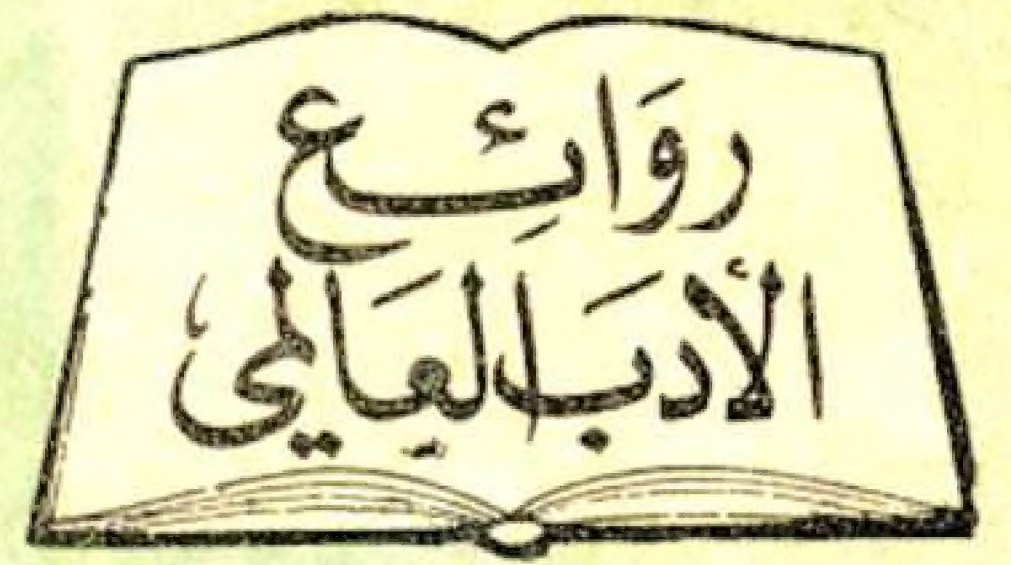 رَوَائِع
الأدَب العَالمي